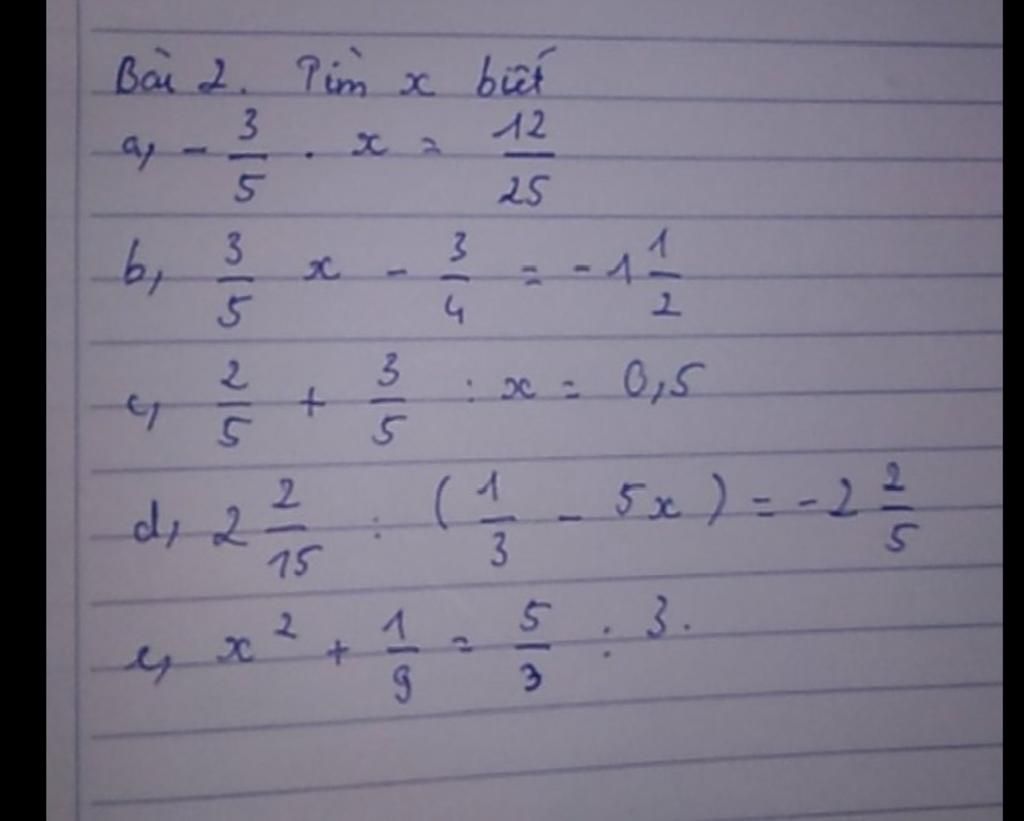 Bài 2. Tìm x biết
a, - 3/5 . x = 12/25
b, 3/5 x - 3/4 = -1 1/2
c, 2/5 + 3/5 : x = 0,5
d, 2 2/15 : (1/3 - 5x) = -2 2/5
e, x² + 1/9 = 5/3 : 3.